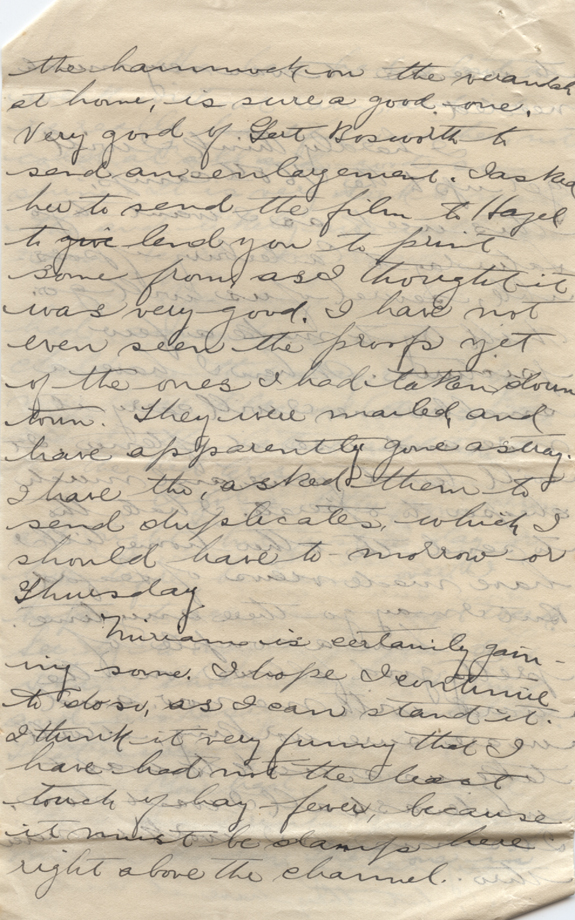 the hammock on the verandah
at home, is sure a good one.
Very good of Gert Bosworth to
send an enlargement. I asked
her to send the film to Hazel
to give lend you to print
some from, as I thought it
was very good. I have not
even seen the proofs yet
of the ones I had taken down
town. They were mailed, and
have apparently gone astray.
I have tho, asked them to
send duplicates, which I
should have to-morrow or
Thursday
Miriam is certainly gain-
ing some. I hope I continue
to do so, as I can stand it.
I think it very funny that I
have had not the least
touch of hay-fever, because
it must be damp here
right above the channel.